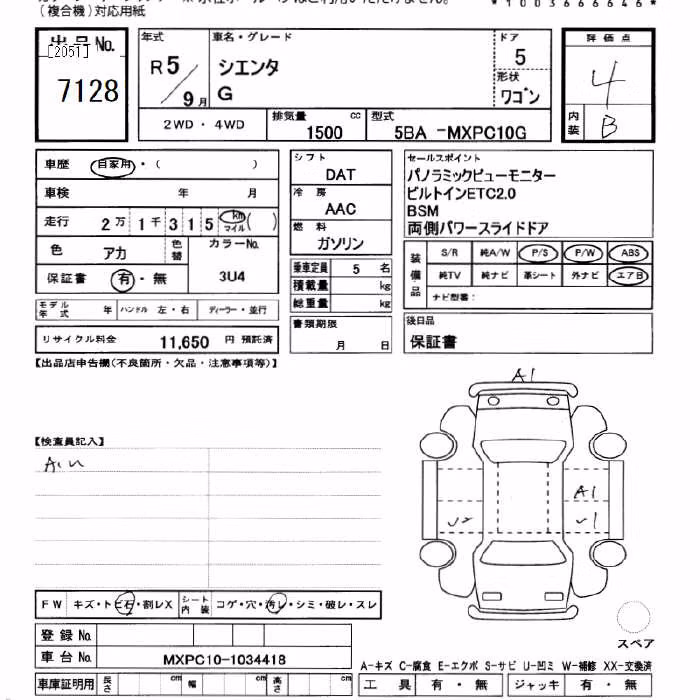 (複合機)対応用紙
*1003666646*
出品No.
[2051]
7128
年式
R5/9月
車名・グレード
シエンタ
G
ドア
5
形状
ワゴン
評価点
4
内装
B
2WD・4WD
排気量
1500 cc
型式
5BA -MXPC10G
車歴 自家用・( )
車検 年 月
走行 2万 1千 3 1 5 km マイル ( )
色 アカ
色替
カラーNo.
3U4
保証書 有・無
モデル年式 年 ハンドル 左・右 ディーラー・並行
リサイクル料金 11,650 円 預託済
シフト
DAT
冷房
AAC
燃料
ガソリン
乗車定員 5 名
積載量 kg
総重量 kg
書類期限
月 日
セールスポイント
パノラミックビューモニター
ビルトインETC2.0
BSM
両側パワースライドドア
装備品
S/R 純A/W P/S P/W ABS
純TV 純ナビ 革シート 外ナビ エアB
ナビ型番:
後日品
保証書
【出品店申告欄(不良箇所・欠品・注意事項等)】
【検査員記入】
A1
A1
FW キズ・トビ石・割レX シート内装 コゲ・穴・汚レ・シミ・破レ・スレ
登録No.
車台No. MXPC10-1034418
車庫証明用 長さ cm 幅 cm 高さ cm
スペア
A-キズ C-腐食 E-エクボ S-サビ U-凹ミ W-補修 XX-交換済
工具 有・無 ジャッキ 有・無